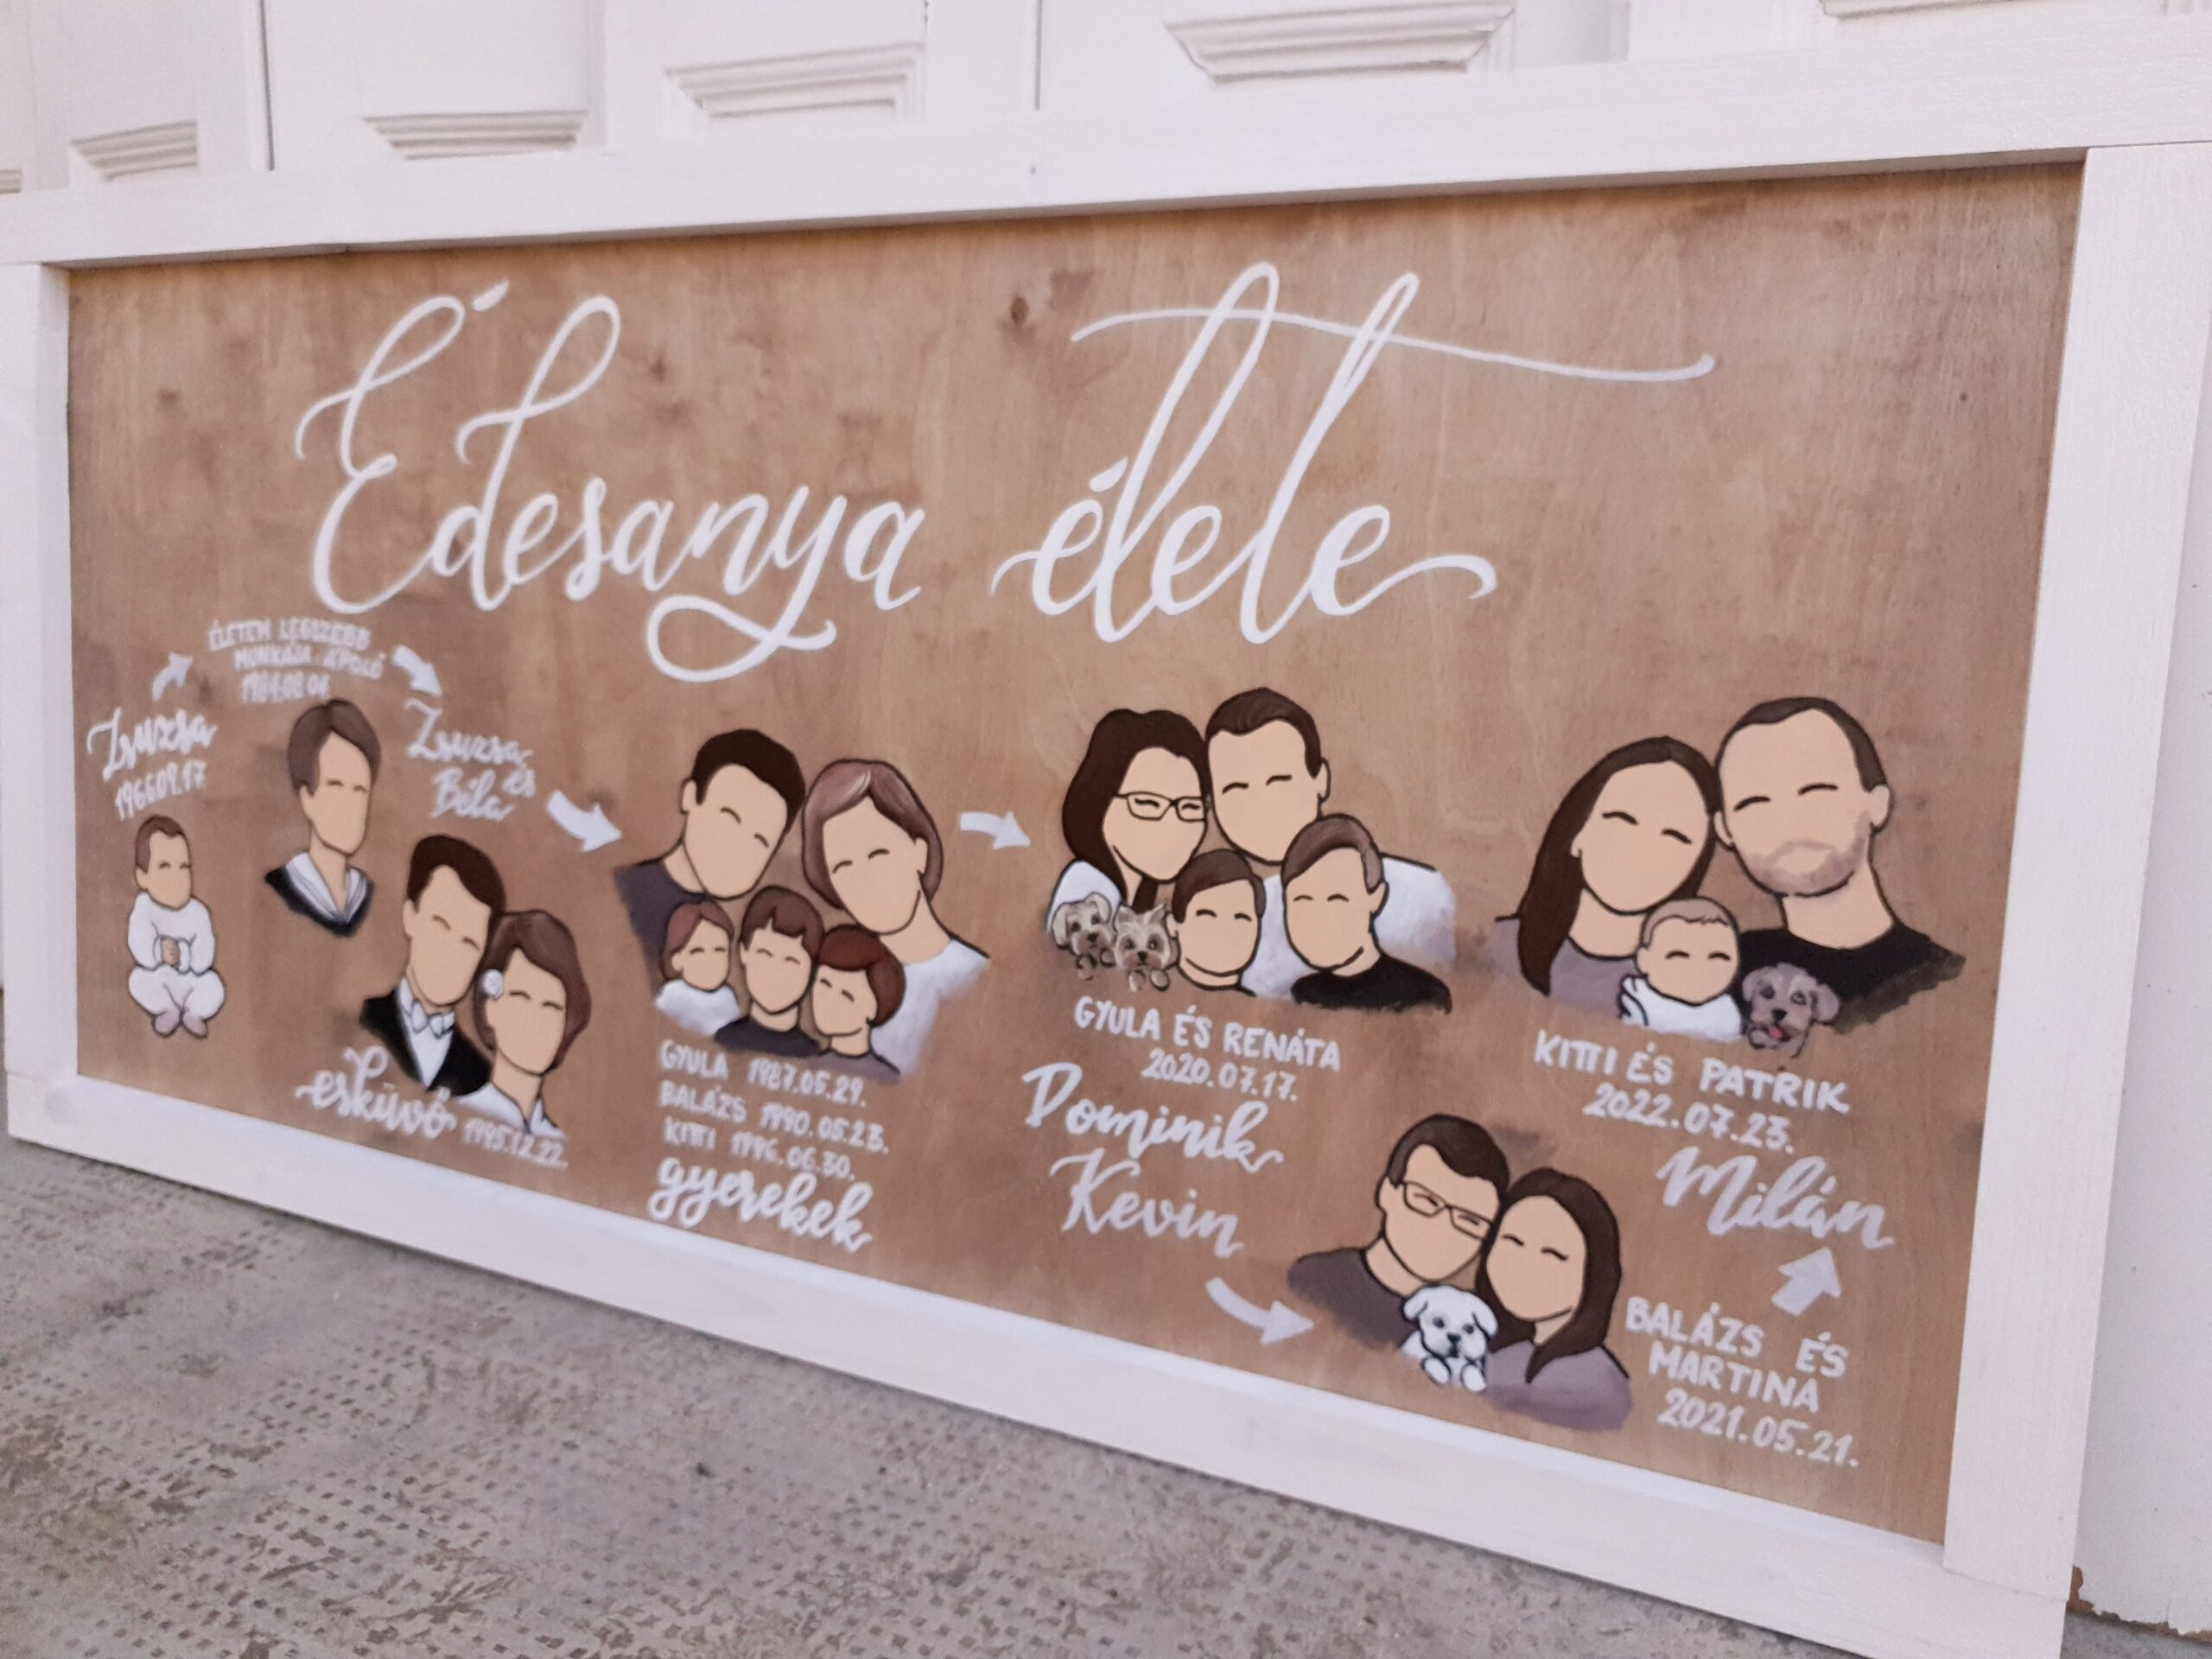 Édesanya élete
ÉLETEM LEGSZEBB
MUNKÁJA: ÁPOLÓ
1984.08.04
Zsuzsa
1966.09.17.
Zsuzsa
és
Béla
Esküvő
GYULA 1987.05.29.
BALÁZS 1990.05.23.
KITTI 1996.06.30.
gyerekek
GYULA ÉS RENÁTA
2020.07.17.
Dominik
Kevin
BALÁZS ÉS
MARTINA
2021.05.21.
KITTI ÉS PATRIK
2022.07.23.
Milán